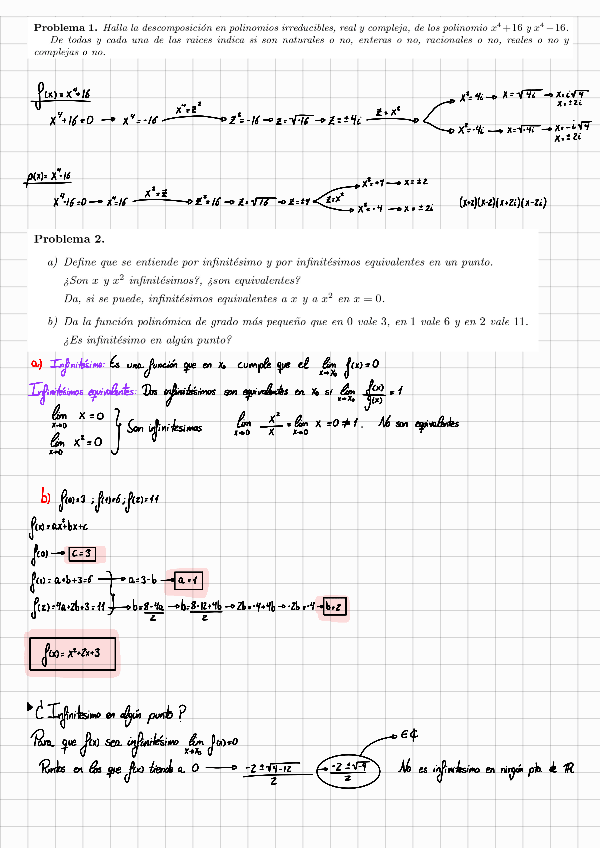 Problema 1. Halla la descomposición en polinomios irreducibles, real y compleja, de los polinomio x⁴+16 y x⁴−16.
De todas y cada una de las raices indica si son naturales o no, enteras o no, racionales o no, reales o no y
complejas o no.
f(x) = x⁴+16
x⁴+16=0 → x⁴=-16 x⁴=z² → z²=-16 → z=√-16 → z=±4i z=x²
x²=4i → x=√4i → x=i√4 x=±2i
x²=-4i → x=√-4i → x=-i√4 x=±2i
p(x)= x⁴-16
x⁴-16=0 → x⁴=16 x²=z → z²=16 → z=√16 → z=±4 z=x²
x²=+4 → x=±2
x²=-4 → x=±2i
(x+2)(x-2)(x+2i)(x-2i)
Problema 2.
a) Define que se entiende por infinitésimo y por infinitésimos equivalentes en un punto.
¿Son x y x² infinitésimos?, ¿son equivalentes?
Da, si se puede, infinitésimos equivalentes a x y a x² en x = 0.
b) Da la función polinómica de grado más pequeño que en 0 vale 3, en 1 vale 6 y en 2 vale 11.
¿Es infinitésimo en algún punto?
a) Infinitésimo: Es una función que en x₀ cumple que el lim x→x₀ f(x)=0
Infinitésimos equivalentes: Dos infinitésimos son equivalentes en x₀ si lim x→x₀ f(x)/g(x) = 1
lim x→0 x=0
lim x→0 x²=0
Son infinitesimos lim x→0 x²/x = lim x→0 x =0≠1. No son equivalentes
b) f(0)=3 ; f(1)=6 ; f(2)=11
f(x)=ax²+bx+c
f(0) → c=3
f(1) = a+b+3=6 → a=3-b → a=1
f(2)=4a+2b+3=11 → b=8-4a/2 → b=8-12+4b/2 → 2b=-4+4b → -2b=-4 → b=2
f(x)= x²+2x+3
¿Infinitesimo en algún punto?
Para que f(x) sea infinitésimo lim x→x₀ f(x)=0
Puntos en los que f(x) tiende a 0 → -2±√4-12/2 → -2±√-8/2 → ∈ ₵ No es infinitesimo en ningún pto. de ℝ